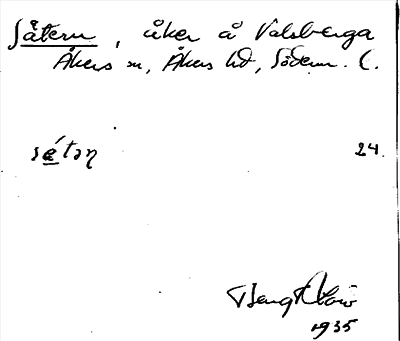 Såtern, åker å Valsberga
Åkers sn, Åkers hd, Söderm. l.
sétəη 24.
Bengt
1935